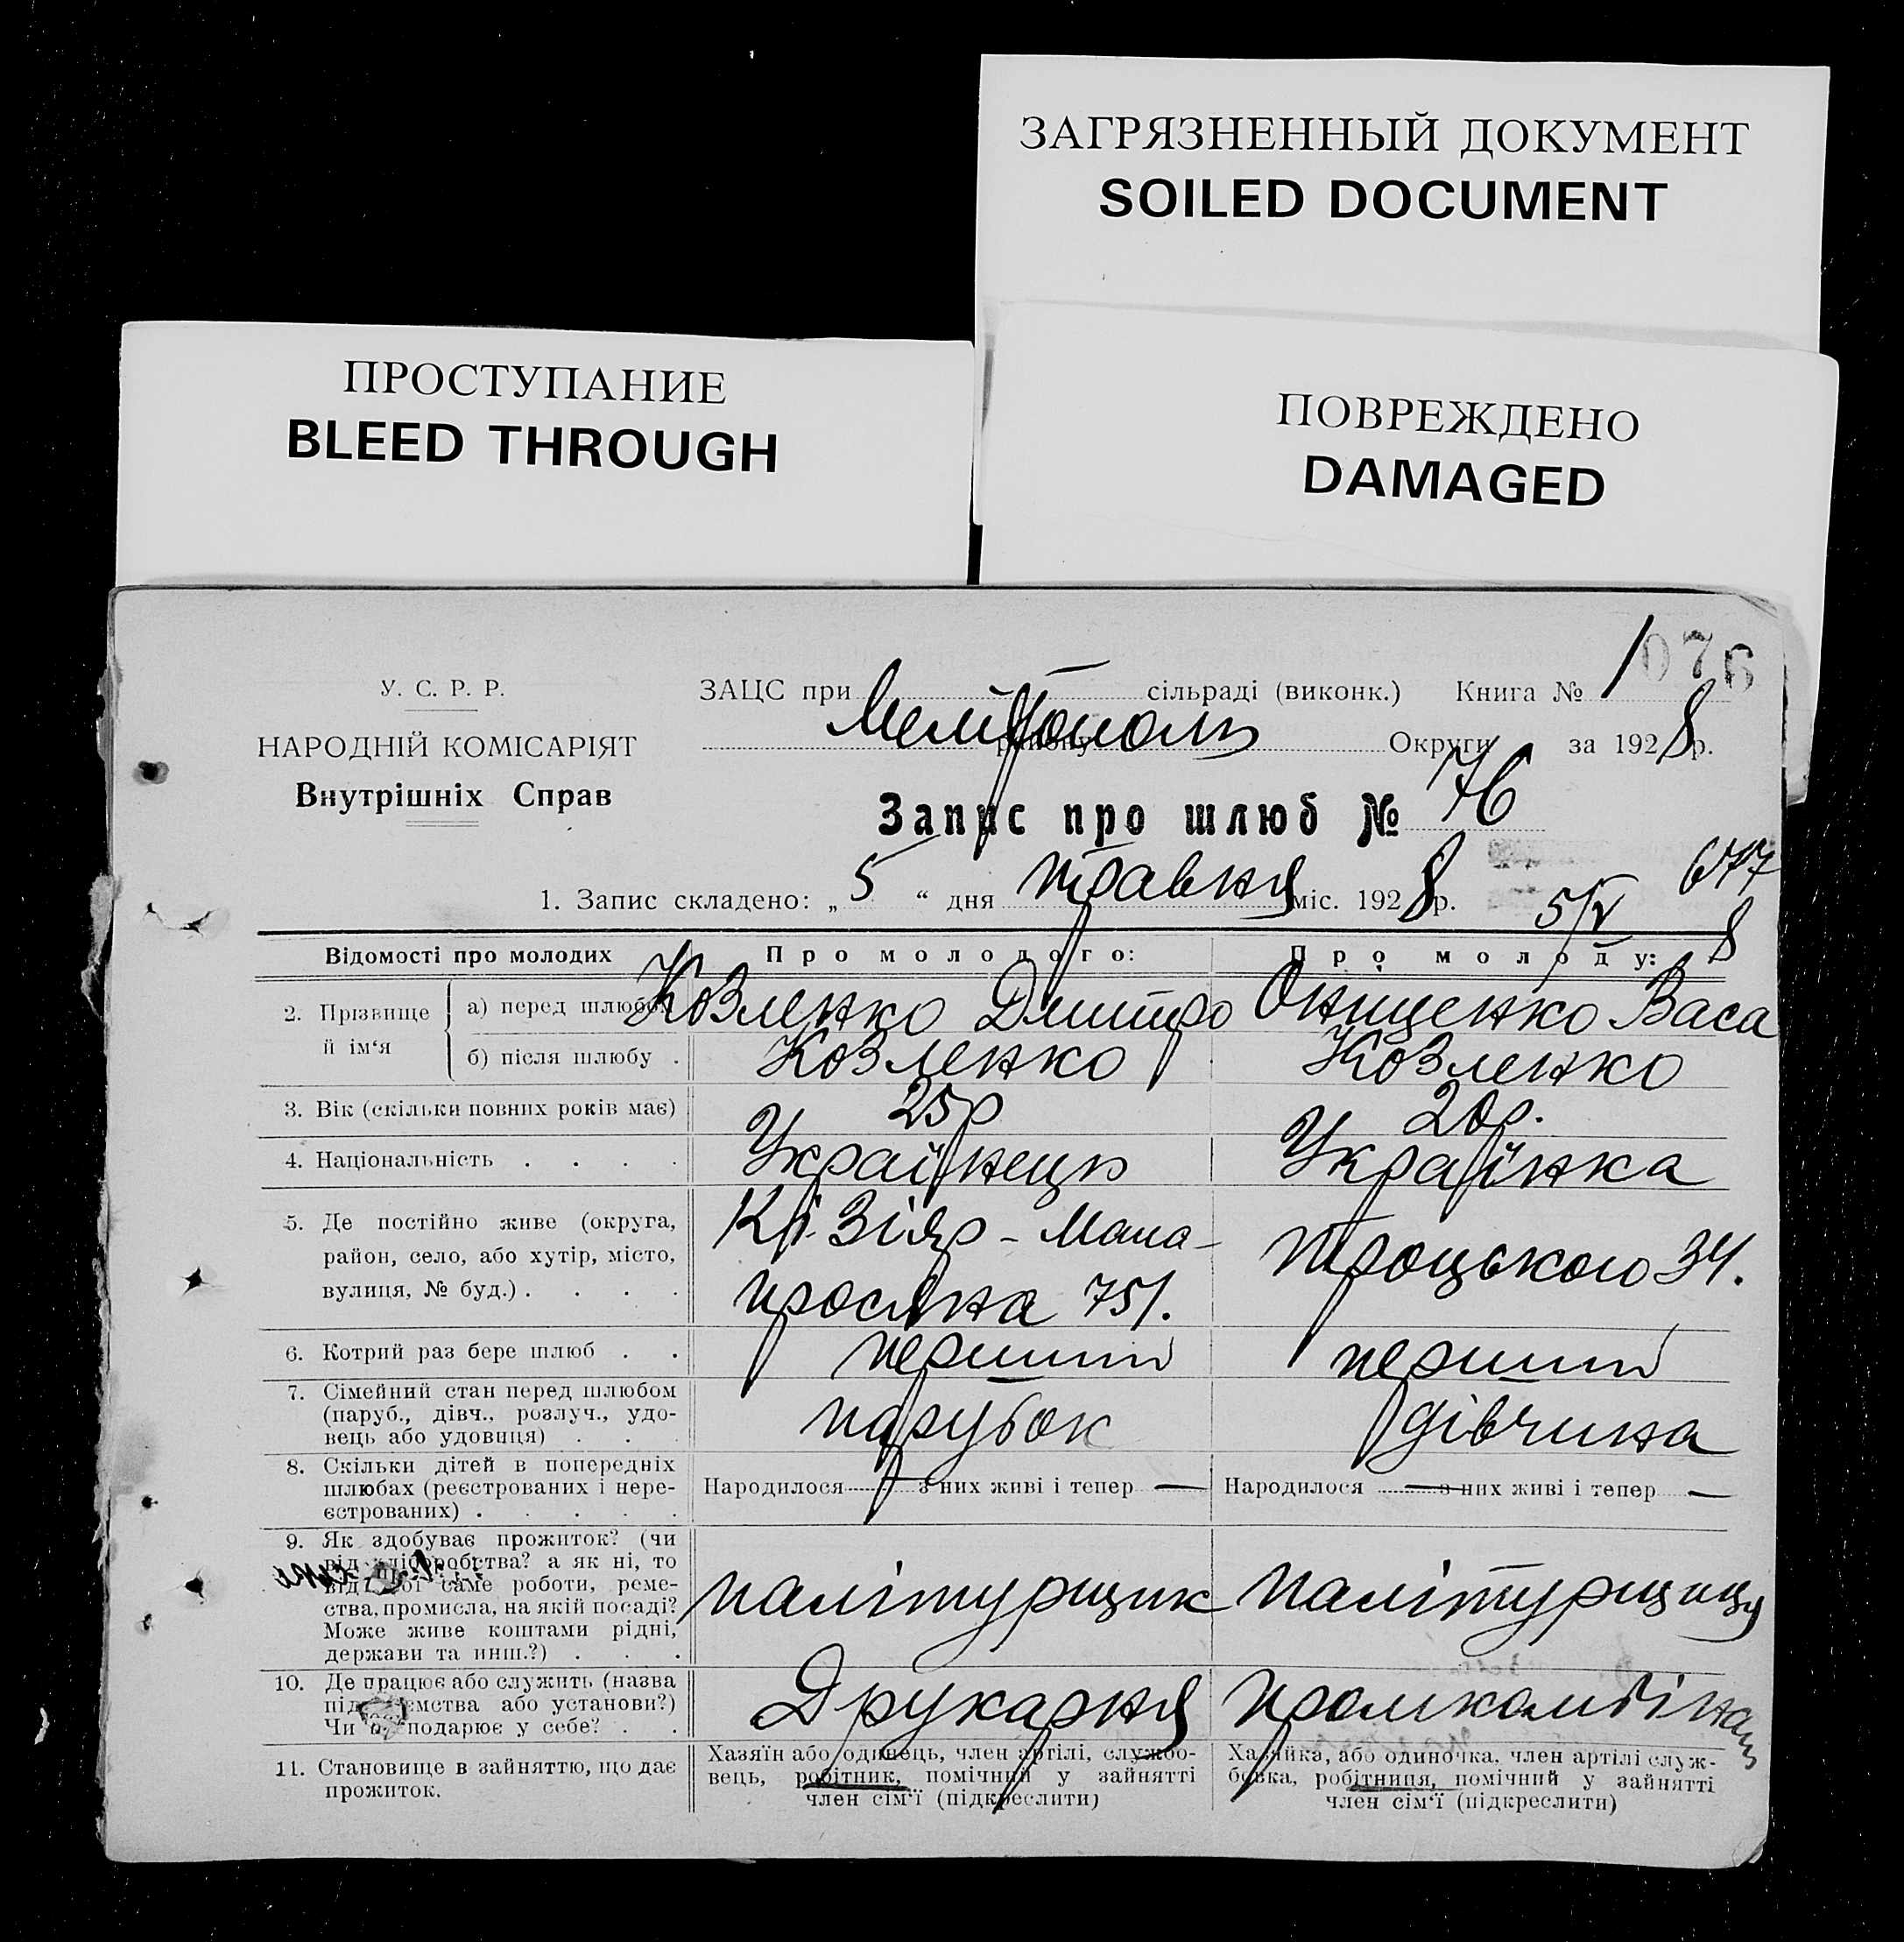 ЗАГРЯЗНЕННЫЙ ДОКУМЕНТ
SOILED DOCUMENT
ПРОСТУПАНИЕ
BLEED THROUGH
ПОВРЕЖДЕНО
DAMAGED
1 076
У. С. Р. Р.
НАРОДНІЙ КОМІСАРІЯТ
Внутрішніх Справ
ЗАЦС при сільраді (виконк.) Книга №
Мелітополь району Округи за 1928 р.
Запис про шлюб № 76
677
1. Запис складено: „5“ дня травня міс. 1928 р. 5/V 8
Відомості про молодих Про молодого: Про молоду:
2. Прізвище й ім‘я
а) перед шлюбом Козленко Дмитро Онищенко Васа
б) після шлюбу . Козленко Козленко
3. Вік (скільки повних років має) 25 р 20 р.
4. Національність . . . . Українець Українка
5. Де постійно живе (округа,
район, село, або хутір, місто,
вулиця, № буд.) . . . .
Мопа-
просяна 751.
Троцького 34.
6. Котрий раз бере шлюб . . перший перший
7. Сімейний стан перед шлюбом
(паруб., дівч., розлуч., удо-
вець або удовиця) . . .
парубок дівчина
8. Скільки дітей в попередніх
шлюбах (реєстрованих і нере-
єстрованих) . . . . .
Народилося — з них живі і тепер — Народилося — з них живі і тепер —
9. Як здобуває прожиток? (чи
від хліборобства? а як ні, то
від якої саме роботи, реме-
ства, промисла, на якій посаді?
Може живе коштами рідні,
держави та инш.?) . . .
палітурщик палітурщиця
10. Де працює або служить (назва
підприємства або установи?)
Чи господарює у себе? . .
Друкарня промкомбінат
11. Становище в зайняттю, що дає
прожиток.
Хазяїн або одинець, член артілі, службо-
вець, робітник, помічний у зайнятті
член сім‘ї (підкреслити)
Хазяйка, або одиночка, член артілі служ-
бовка, робітниця, помічний у зайнятті
член сім‘ї (підкреслити)